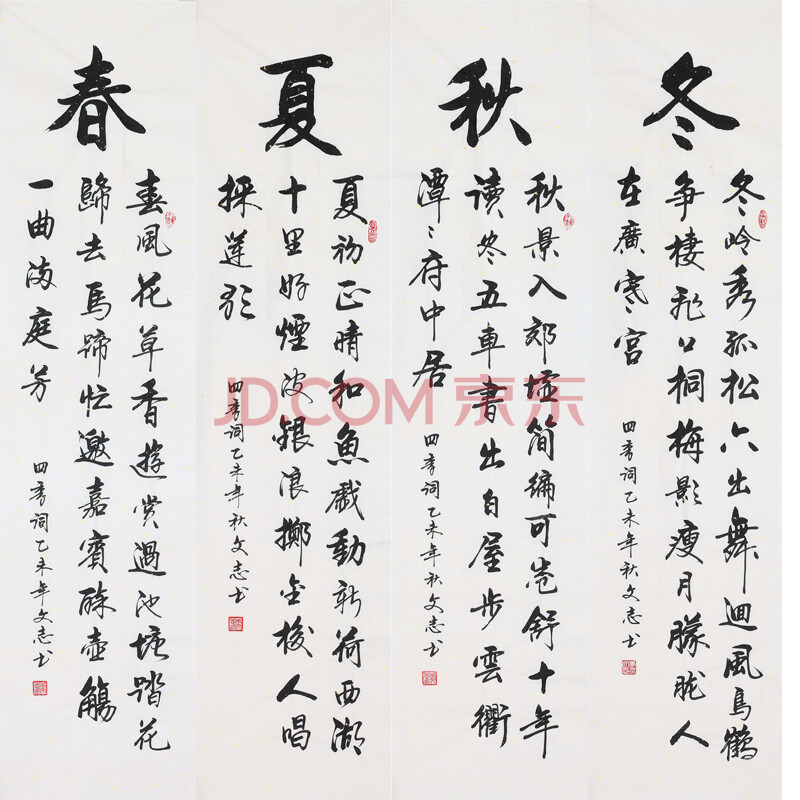 春
春風花草香遊賞過池塘踏花
歸去馬蹄忙邀嘉賓醉壺觴
一曲滿庭芳
四季詞乙未年文志书
夏
夏初正晴和魚戲動新荷西湖
十里好煙波銀浪擲金梭人唱
採蓮歌
四季詞乙未年秋文志书
秋
秋景入郊墟简编可卷舒十年
读尽五車書出白屋步雲衢
潭潭府中居
四季詞乙未年秋文志书
冬
冬岭秀孤松六出舞迴風鳥鶴
争棲飛上桐梅影瘦月朦朧人
在廣寒宮
四季詞乙未年秋文志书
JD.COM 京东